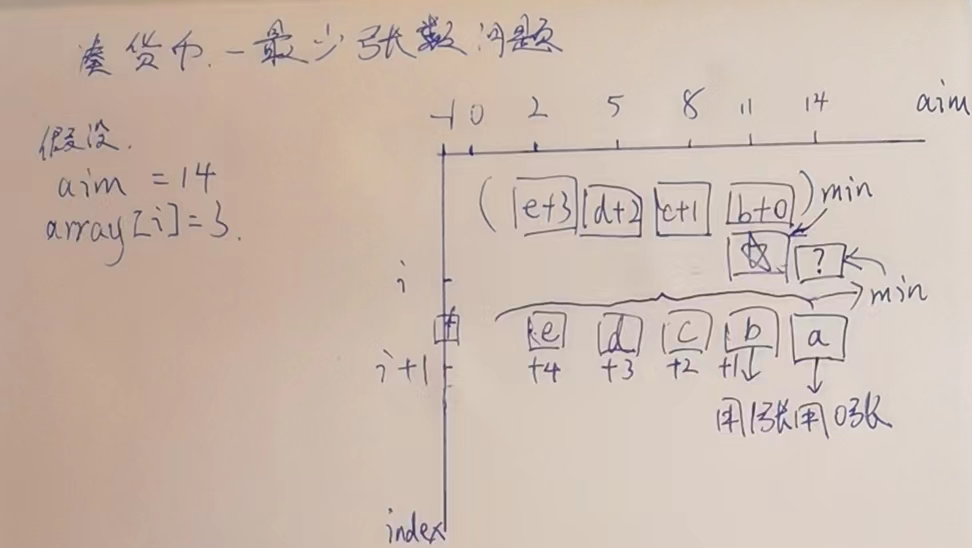 凑货币-最少张数问题
假设.
aim = 14
array[i]=3.
-1 0 2 5 8 11 14 aim
( e+3 d+2 c+1 b+0 ) min
☆ ?
i
min
e d c b a
i+1 +4 +3 +2 +1
用1张 用0张
index